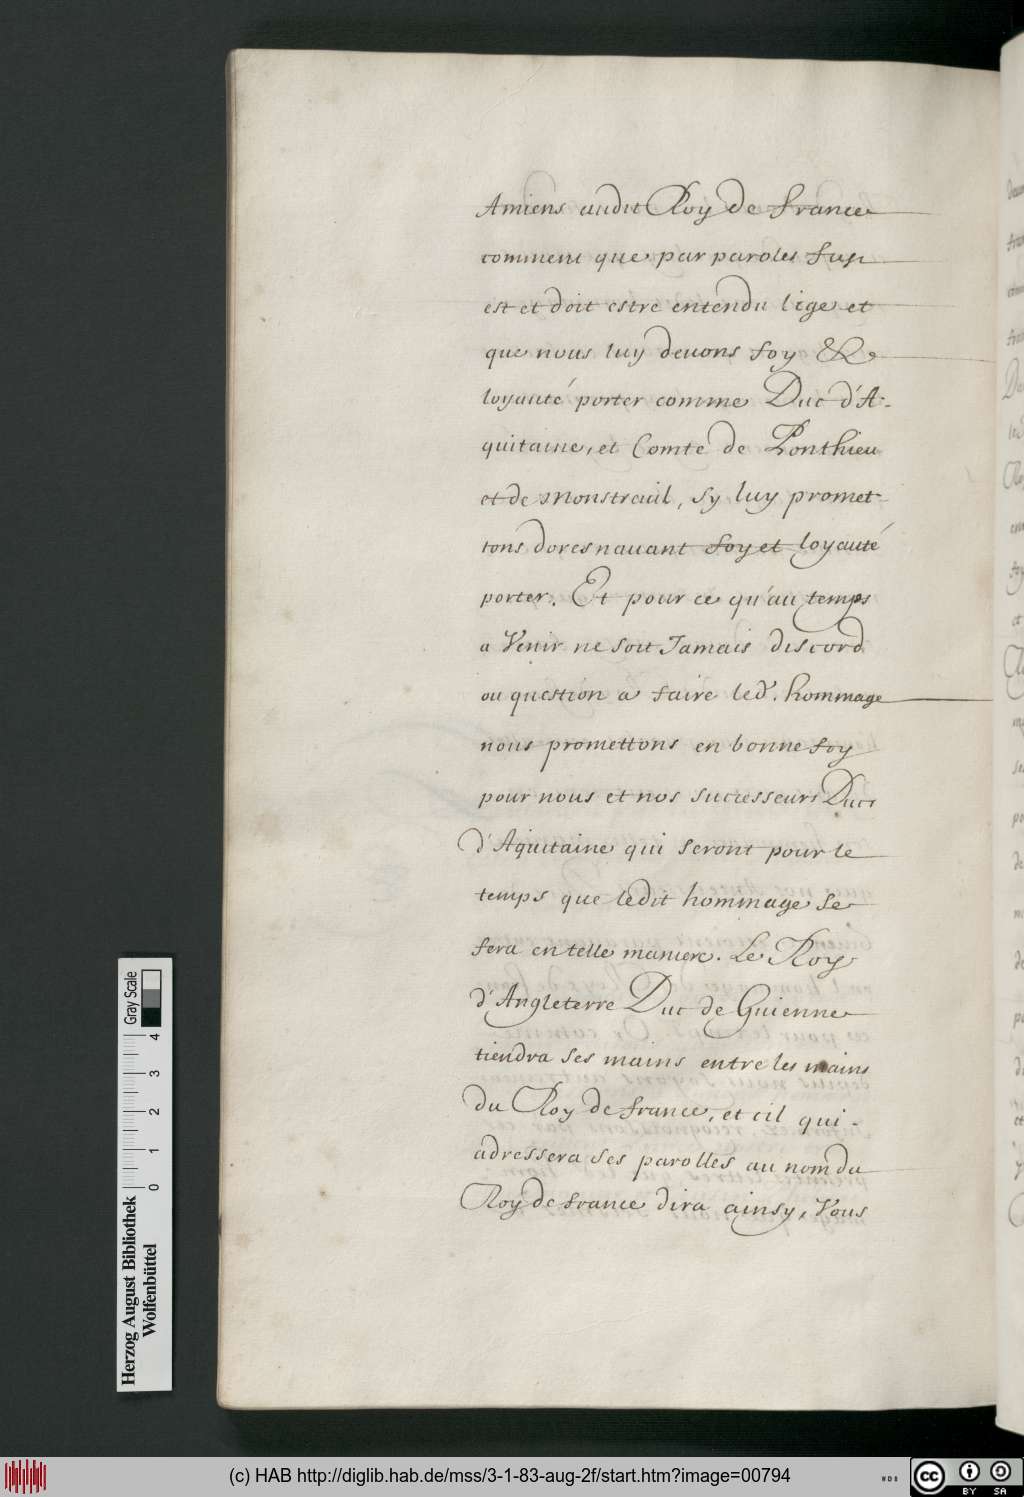 Amiens audit Roy de france
comment que par paroles fust
est et doit estre entendu lige et
que nous luy devons foy &
loyauté porter comme Duc d'A-
quitaine, et Comte de Ponthieu
et de Monstreuil, sy luy promet-
tons doresnavant foy et loyauté
porter. Et pour ce qu'au temps
a Venir ne soit Jamais discord
ou question a faire led. hommage
nous promettons en bonne foy
pour nous et nos successeurs Ducs
d'Aquitaine qui seront pour le
temps que ledit hommage se
fera en telle maniere. Le Roy
d'Angleterre Duc de Guienne
tiendra ses mains entre les mains
du Roy de france, et cil qui-
adressera ses parolles au nom du
Roy de france dira ainsy, Vous
Herzog August Bibliothek
Wolfenbüttel
0 1 2 3 4
Gray Scale
(c) HAB http://diglib.hab.de/mss/3-1-83-aug-2f/start.htm?image=00794
WDB
cc BY SA